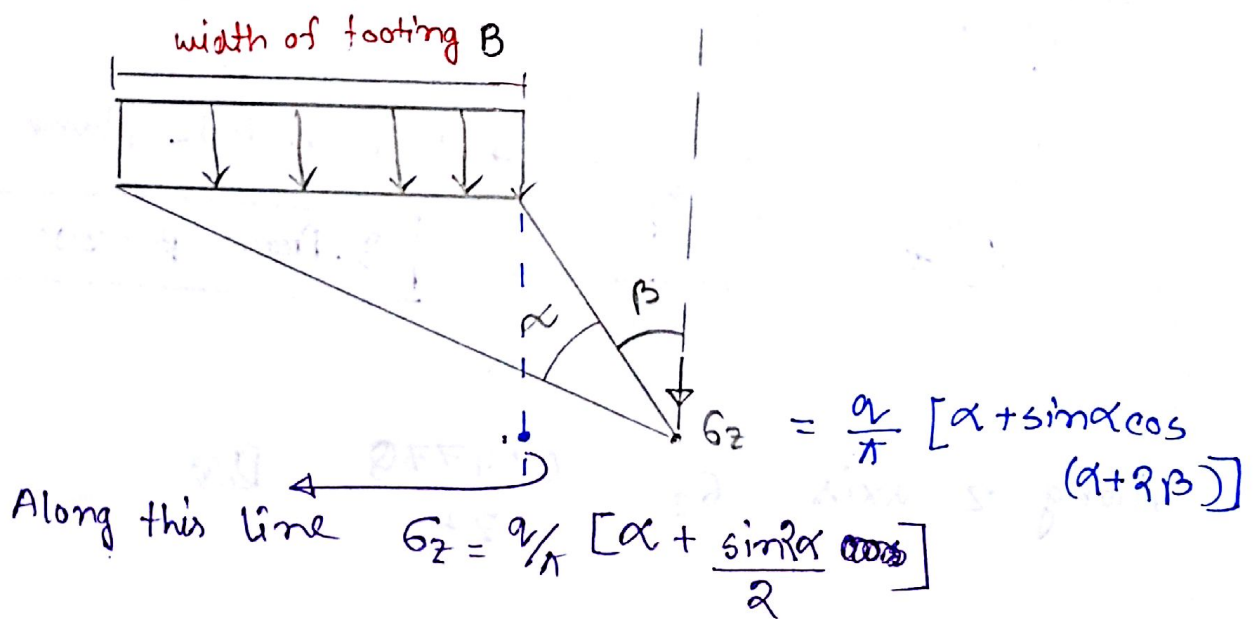 width of footing B
β
α
σz = q/π [α + sinα cos
(α+2β)]
Along this line σz = q/π [α + sin2α/2]